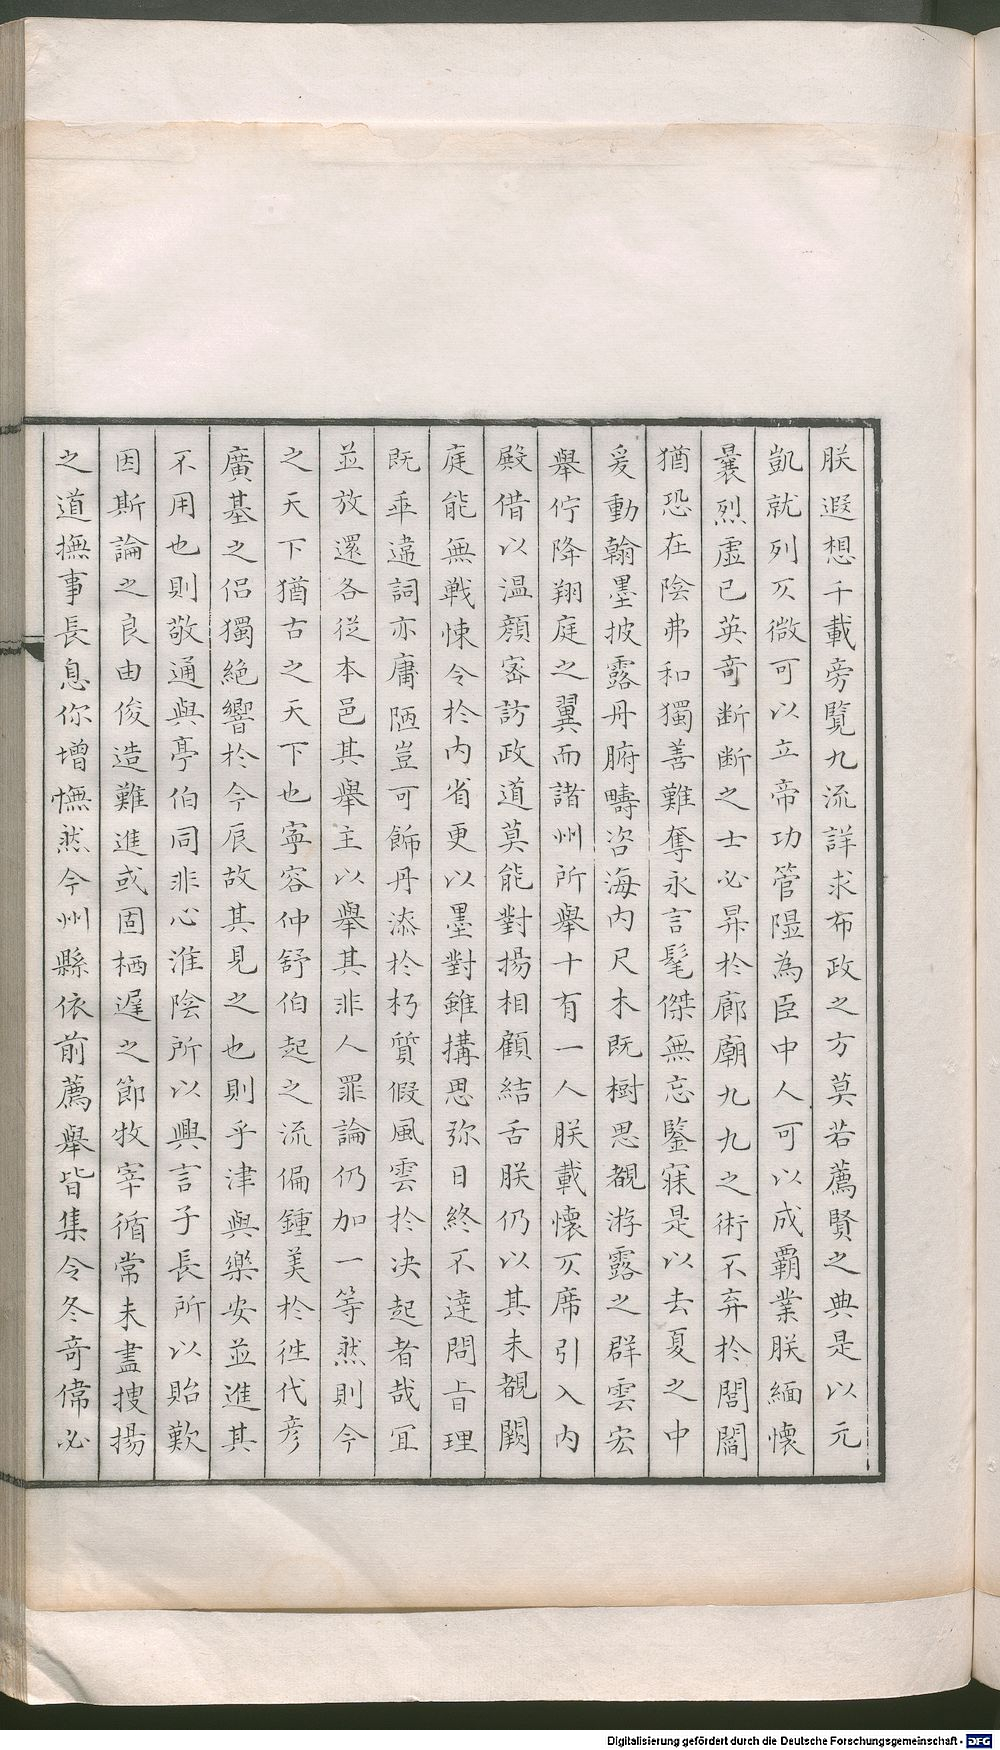 朕遐想千載旁覽九流詳求布政之方莫若薦賢之典是以元
凱就列仄微可以立帝功管隰為臣中人可以成霸業朕緬懷
曩烈虛已英奇斷斷之士必昇於廊廟九九之術不弃於閭閻
猶恐在陰弗和獨善難奪永言髦傑無忘鑒寐是以去夏之中
爰動翰墨披露丹腑疇咨海内尺木既樹思覩游露之群雲宏
舉佇降翔庭之翼而諸州所舉十有一人朕載懷仄席引入内
殿借以温顔宻訪政道莫能對揚相顧結舌朕仍以其未覩闕
庭能無戰悚令於内省更以墨對雖搆思弥日終不逹問旨理
既乖違詞亦庸陋豈可餙丹漆於朽質假風雲於决起者哉冝
並放還各從本邑其舉主以舉其非人罪論仍加一等然則今
之天下猶古之天下也寕容仲舒伯起之流偏鍾美於徃代彦
廣基之侣獨絶響於今辰故其見之也則乎津與樂安並進其
不用也則敬通與亭伯同非心淮陰所以興言子長所以貽歎
因斯論之良由俊造難進或固栖遲之節牧宰循常未盡搜揚
之道撫事長息你增憮然今州縣依前薦舉皆集令冬奇偉必
Digitalisierung gefördert durch die Deutsche Forschungsgemeinschaft - DFG